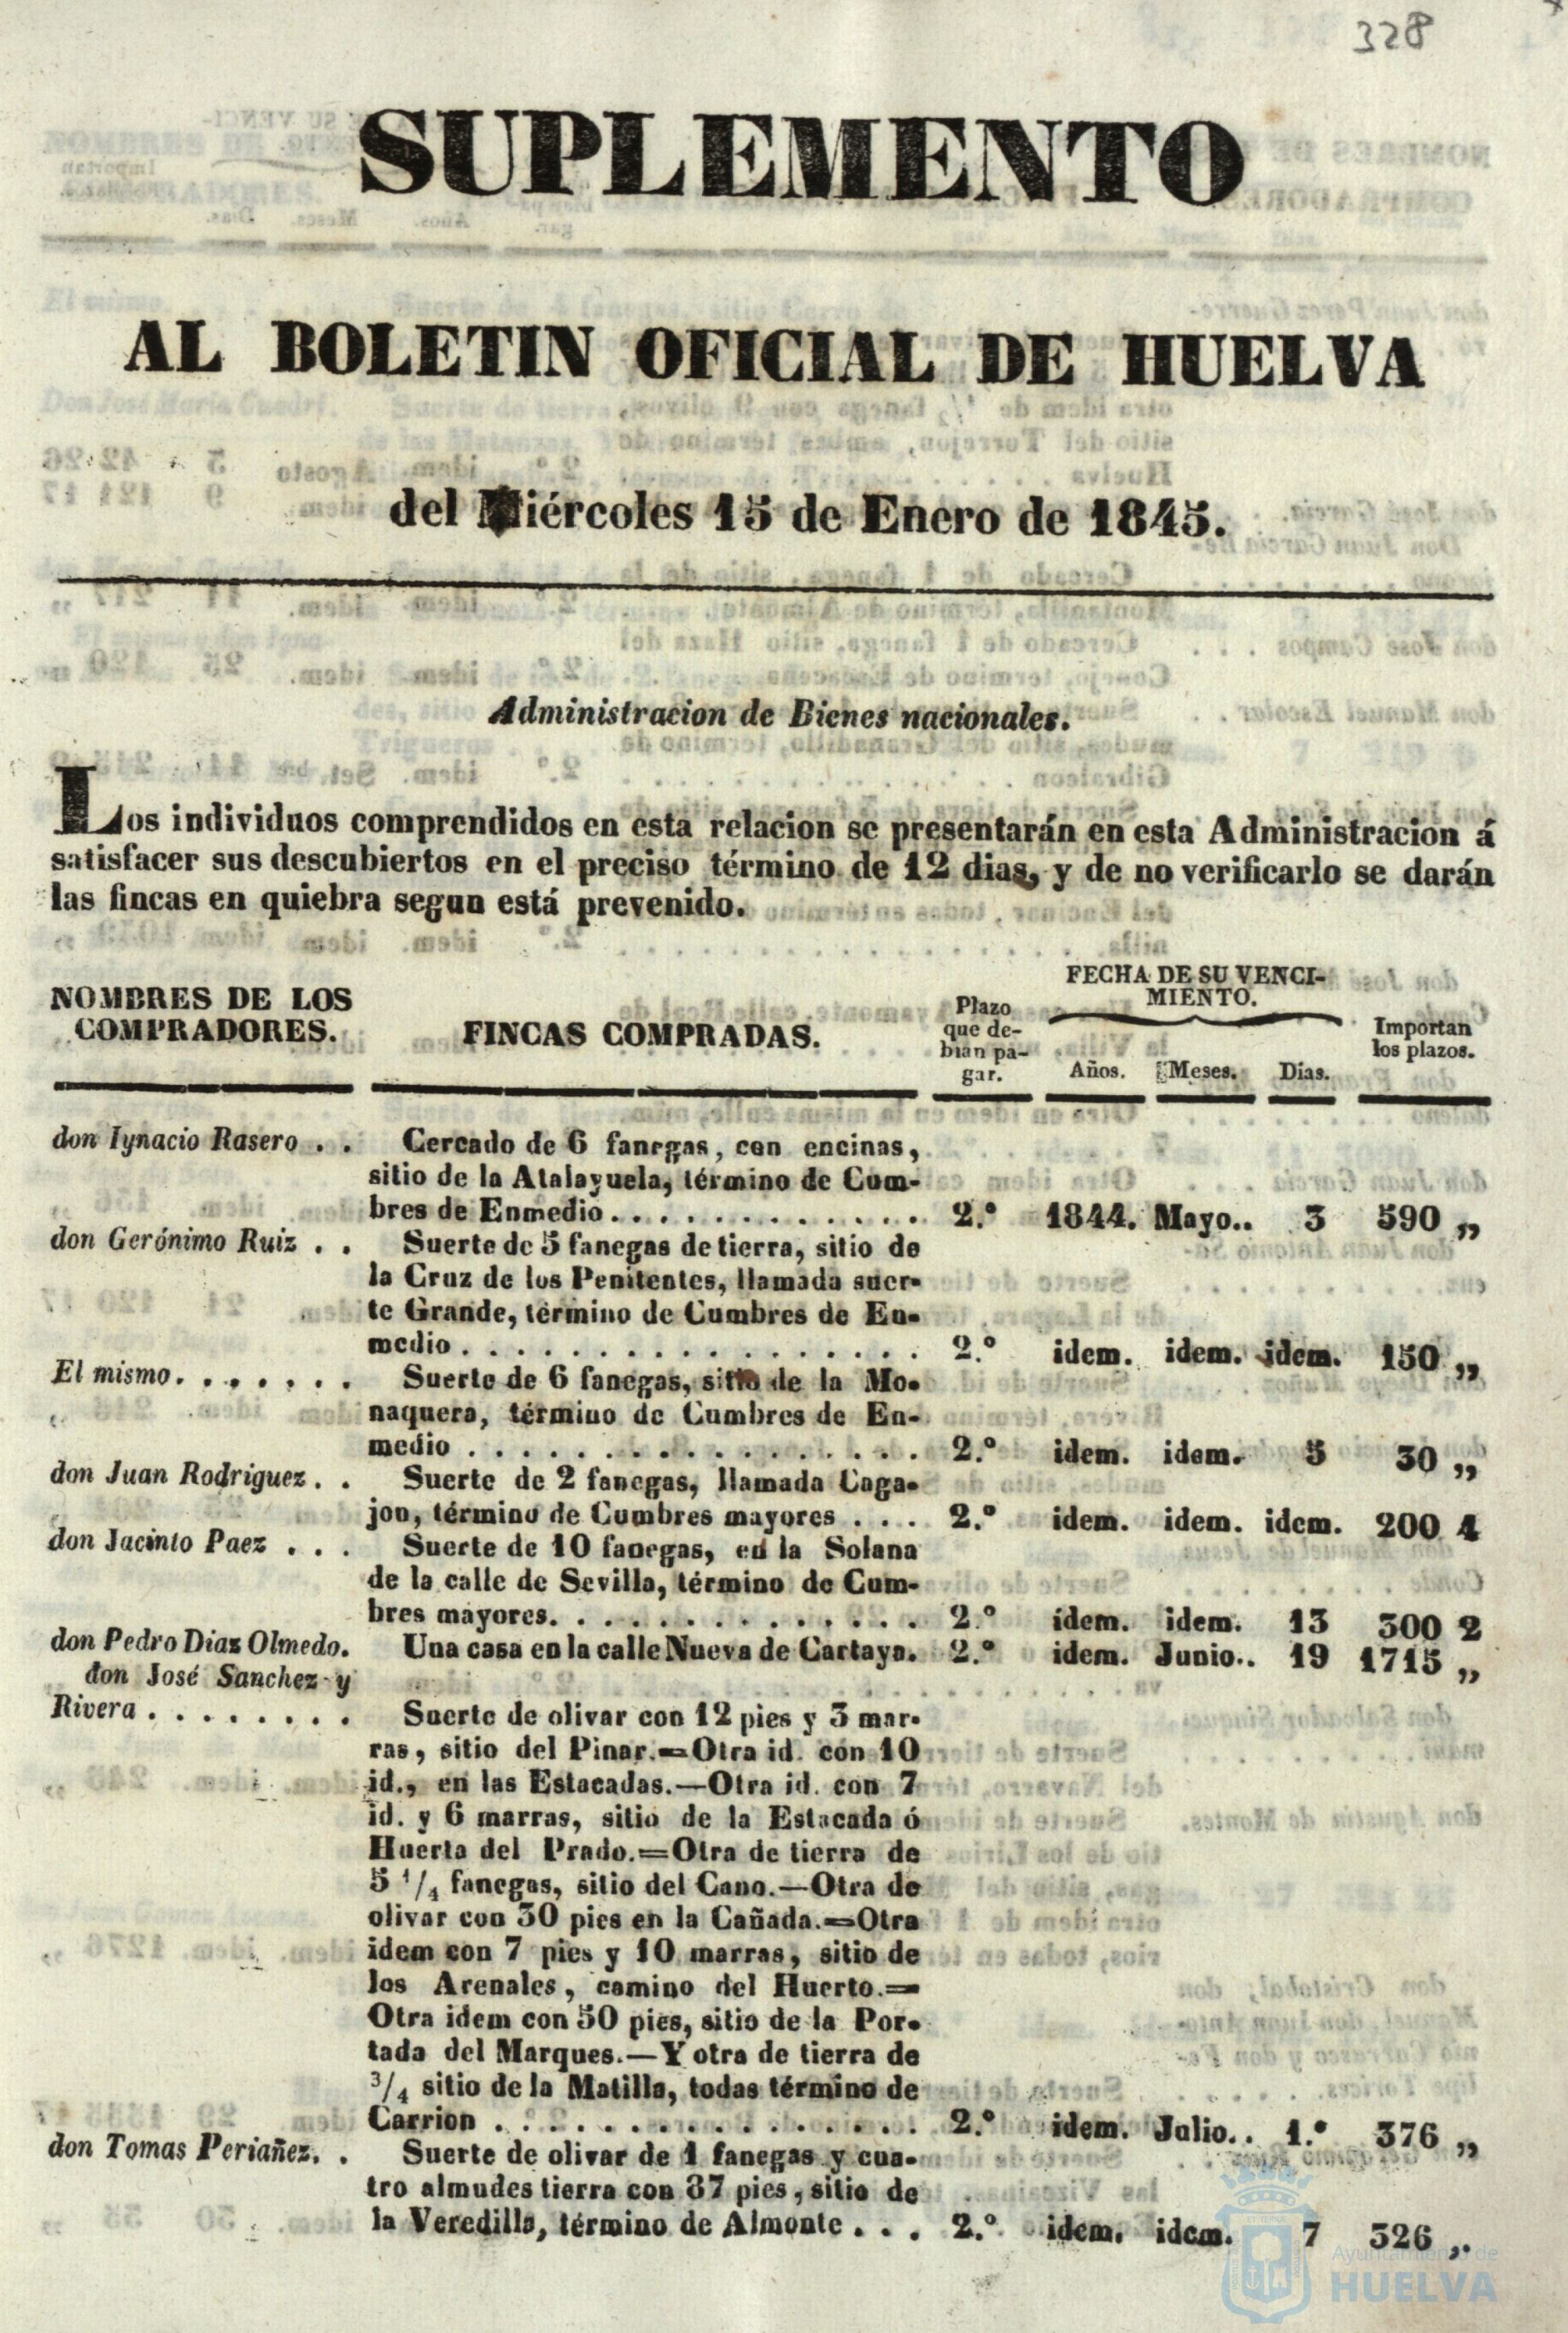 328
SUPLEMENTO
AL BOLETIN OFICIAL DE HUELVA
del Miércoles 15 de Enero de 1845.
Administracion de Bienes nacionales.
Los individuos comprendidos en esta relacion se presentarán en esta Administracion á
satisfacer sus descubiertos en el preciso término de 12 dias, y de no verificarlo se darán
las fincas en quiebra segun está prevenido.
NOMBRES DE LOS
COMPRADORES.
FINCAS COMPRADAS.
Plazo
que de-
bian pa-
gar.
FECHA DE SU VENCI-
MIENTO.
Años. Meses. Dias.
Importan
los plazos.
don Ignacio Rasero . . Cercado de 6 fanegas, con encinas,
sitio de la Atalayuela, término de Cum-
bres de Enmedio . . . . . . . . . . . . 2.º 1844. Mayo.. 3 590 „
don Gerónimo Ruiz . . Suerte de 5 fanegas de tierra, sitio de
la Cruz de los Penitentes, llamada suer-
te Grande, término de Cumbres de En-
medio . . . . . . . . . . . . . . . . . 2.º idem. idem. idem. 150 „
El mismo . . . . . . . Suerte de 6 fanegas, sitio de la Mo-
naquera, término de Cumbres de En-
medio . . . . . . . . . . . . . . . . . 2.º idem. idem. 5 30 „
don Juan Rodriguez . . Suerte de 2 fanegas, llamada Caga-
jon, término de Cumbres mayores . . . 2.º idem. idem. idem. 200 4
don Jacinto Paez . . . Suerte de 10 fanegas, en la Solana
de la calle de Sevilla, término de Cum-
bres mayores. . . . . . . . . . . . . . 2.º idem. idem. 13 300 2
don Pedro Diaz Olmedo. Una casa en la calle Nueva de Cartaya. 2.º idem. Junio.. 19 1715 „
don José Sanchez y
Rivera . . . . . . . . Suerte de olivar con 12 pies y 3 mar-
ras, sitio del Pinar.=Otra id. con 10
id., en las Estacadas.—Otra id. con 7
id. y 6 marras, sitio de la Estacada ó
Huerta del Prado.=Otra de tierra de
5 1/4 fanegas, sitio del Cano.—Otra de
olivar con 30 pies en la Cañada.=Otra
idem con 7 pies y 10 marras, sitio de
los Arenales, camino del Huerto.=
Otra idem con 50 pies, sitio de la Por-
tada del Marques.—Y otra de tierra de
3/4 sitio de la Matilla, todas término de
Carrion . . . . . . . . . . . . . . . . 2.º idem. Julio.. 1.º 376 „
don Tomas Periañez. . Suerte de olivar de 1 fanegas y cua-
tro almudes tierra con 37 pies, sitio de
la Veredilla, término de Almonte . . . 2.º idem. idem. 7 326 „.
Ayuntamiento de
HUELVA